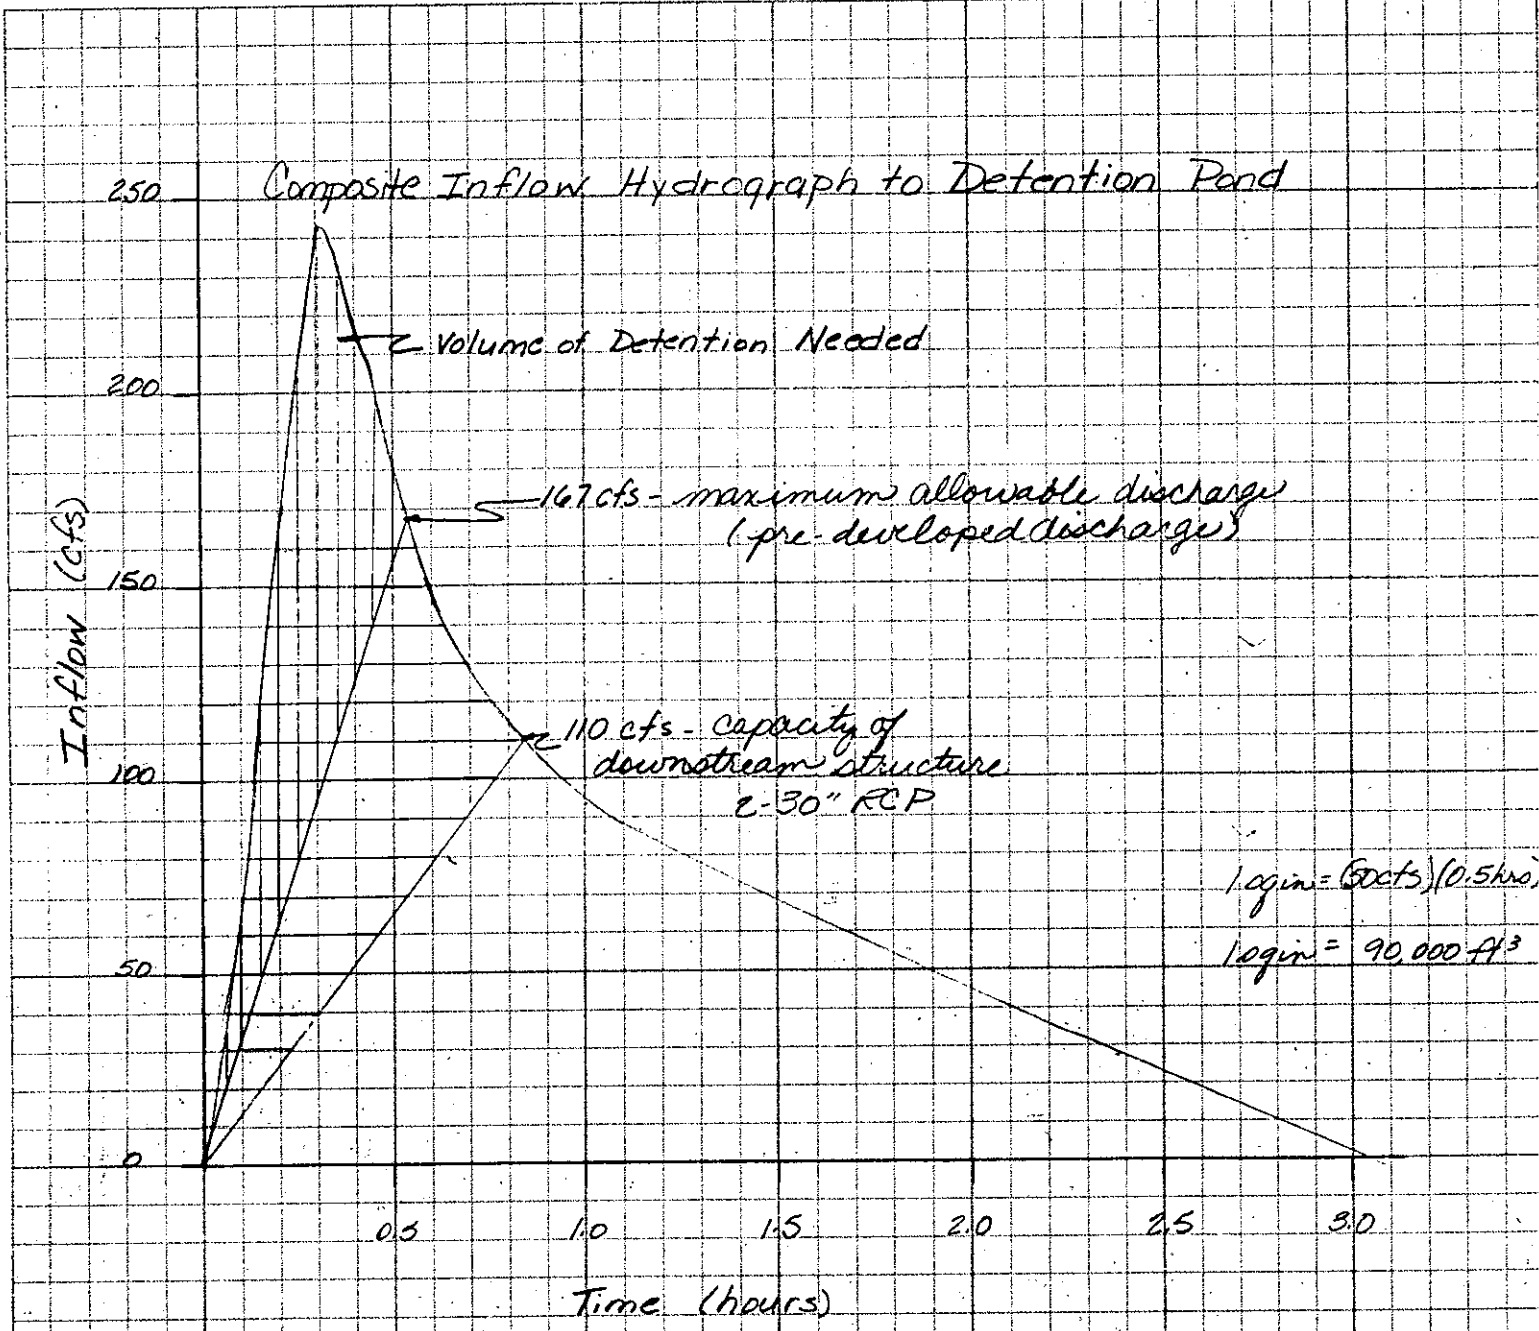 Composite Inflow Hydrograph to Detention Pond
250
Volume of Detention Needed
200
167 cfs - maximum allowable discharge
(pre-developed discharge)
150
Inflow (cfs)
110 cfs - capacity of
downstream structure
2-30" RCP
100
1 sqin = (50cfs)(0.5hrs)
1 sqin = 90,000 ft³
50
0
0.5 1.0 1.5 2.0 2.5 3.0
Time (hours)